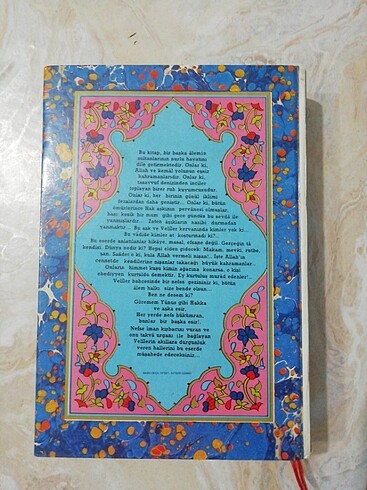 Bu kitap, bir başka âlemin
sultanlarının nurlu hayatını
dile getirmektedir. Onlar ki,
Allah ve kemâl yolunun eşsiz
kahramanlarıdır. Onlar ki,
tasavvuf denizinden inciler
toplayan birer ruh kuyumcusudur.
Onlar ki, her birinin gönül iklimi
fezalardan daha geniştir... Onlar ki, bütün
ömürlerince Hak aşkının pervânesi olmaları
bazı kesik bir mum gibi gece gündüz bu sevda ile
yanmışlardır... Zaten âşıkların nasibi durmadan
yanmaktır... Bu aşk ve Veliler kervanında kimler yok ki...
Bu vâdide kimler at koşturmadı ki?..
Bu eserde anlatılanlar hikâye, masal, efsane değil. Gerçeğin tâ
kendisi. Dünya nedir ki? Hepsi elden gidecek: Makam, mevki, rütbe,
şan. Saâdet o ki, kula Allah vermeli nişan!.. İşte Allah'ın
cennetde kendilerine nişanlar takacağı büyük kahramanlar...
Onların himmet kuşu kimin ağucuna konarsa, o kişi
ebediyyen kurtuldu demektir. Ey kurtuluş murâd edenler!
Veliler bahçesinde bir nefes gezininiz ki, bütün
âlem halkı size bende olsun...
Ben ne desem ki?
Göremem Yûnus gibi Hakka
ve aşka esir,
Her yerde nefs hükümran,
bunlar bir başka esir!.
Nefse iman kırbacını vuran ve
onu takvâ urganı ile bağlayan
Velilerin akıllara durgunluk
veren hallerini bu eserde
müşahede edeceksiniz...